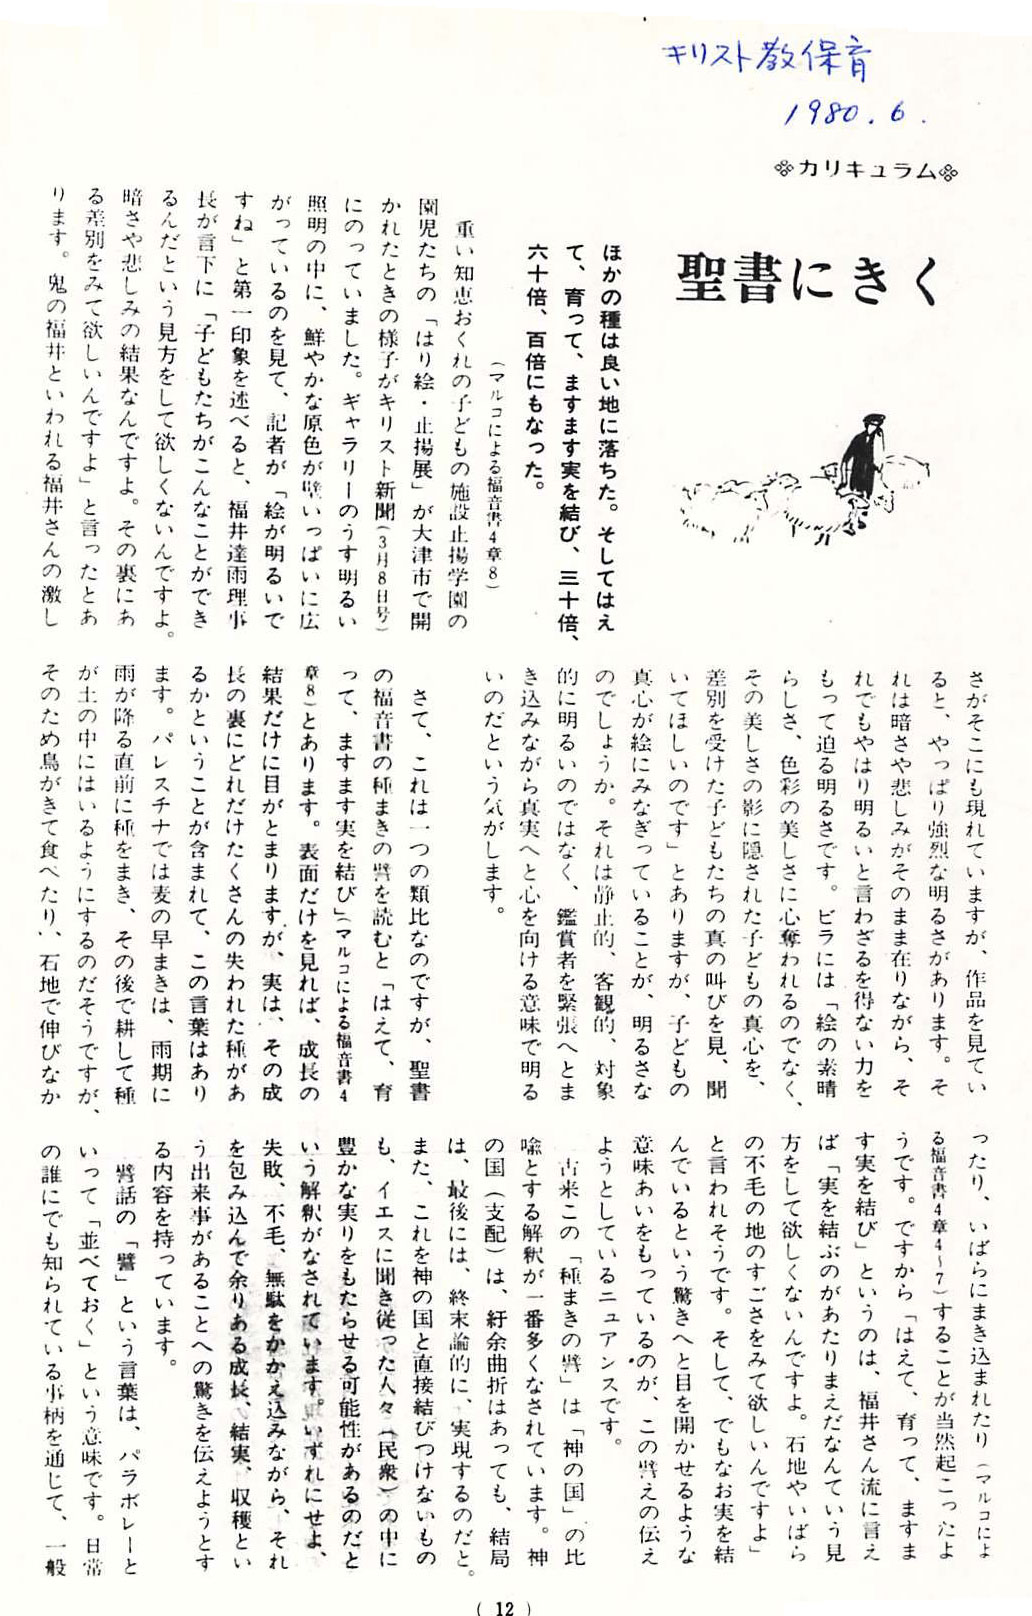 キリスト教保育
1980.6.
※カリキュラム※
聖書にきく
ほかの種は良い地に落ちた。そしてはえ
て、育って、ますます実を結び、三十倍、
六十倍、百倍にもなった。
（マルコによる福音書4章8）
重い知恵おくれの子どもの施設止揚学園の
園児たちの「はり絵・止揚展」が大津市で開
かれたときの様子がキリスト新聞（3月8日号）
にのっていました。ギャラリーのうす明るい
照明の中に、鮮やかな原色が壁いっぱいに広
がっているのを見て、記者が「絵が明るいで
すね」と第一印象を述べると、福井達雨理事
長が言下に「子どもたちがこんなことができ
るんだという見方をして欲しくないんですよ。
暗さや悲しみの結果なんですよ。その裏にあ
る差別をみて欲しいんですよ」と言ったとあ
ります。鬼の福井といわれる福井さんの激し
さがそこにも現れていますが、作品を見てい
ると、やっぱり強烈な明るさがあります。そ
れは暗さや悲しみがそのまま在りながら、そ
れでもやはり明るいと言わざるを得ない力を
もって迫る明るさです。ビラには「絵の素晴
らしさ、色彩の美しさに心奪われるのでなく、
その美しさの影に隠された子どもの真心を、
差別を受けた子どもたちの真の叫びを見、聞
いてほしいのです」とありますが、子どもの
真心が絵にみなぎっていることが、明るさな
のでしょうか。それは静止的、客観的、対象
的に明るいのではなく、鑑賞者を緊張へとま
き込みながら真実へと心を向ける意味で明る
いのだという気がします。
さて、これは一つの類比なのですが、聖書
の福音書の種まきの譬を読むと「はえて、育
って、ますます実を結び」（マルコによる福音書4
章8）とあります。表面だけを見れば、成長の
結果だけに目がとまりますが、実は、その成
長の裏にどれだけたくさんの失われた種があ
るかということが含まれて、この言葉はあり
ます。パレスチナでは麦の早まきは、雨期に
雨が降る直前に種をまき、その後で耕して種
が土の中にはいるようにするのだそうですが、
そのため鳥がきて食べたり、石地で伸びなか
ったり、いばらにまき込まれたり（マルコによ
る福音書4章4〜7）することが当然起こったよ
うです。ですから「はえて、育って、ますま
す実を結び」というのは、福井さん流に言え
ば「実を結ぶのがあたりまえだなんていう見
方をして欲しくないんですよ。石地やいばら
の不毛の地のすごさをみて欲しいんですよ」
と言われそうです。そして、でもなお実を結
んでいるという驚きへと目を開かせるような
意味あいをもっているのが、この譬えの伝え
ようとしているニュアンスです。
古来この「種まきの譬」は「神の国」の比
喩とする解釈が一番多くなされています。神
の国（支配）は、紆余曲折はあっても、結局
は、最後には、終末論的に、実現するのだと。
また、これを神の国と直接結びつけないもの
も、イエスに聞き従った人々（民衆）の中に
豊かな実りをもたらせる可能性があるのだと
いう解釈がなされています。いずれにせよ、
失敗、不毛、無駄をかかえ込みながら、それ
を包み込んで余りある成長、結実、収穫とい
う出来事があることへの驚きを伝えようとす
る内容を持っています。
譬話の「譬」という言葉は、パラボレーと
いって「並べておく」という意味です。日常
の誰にでも知られている事柄を通じて、一般
（12）